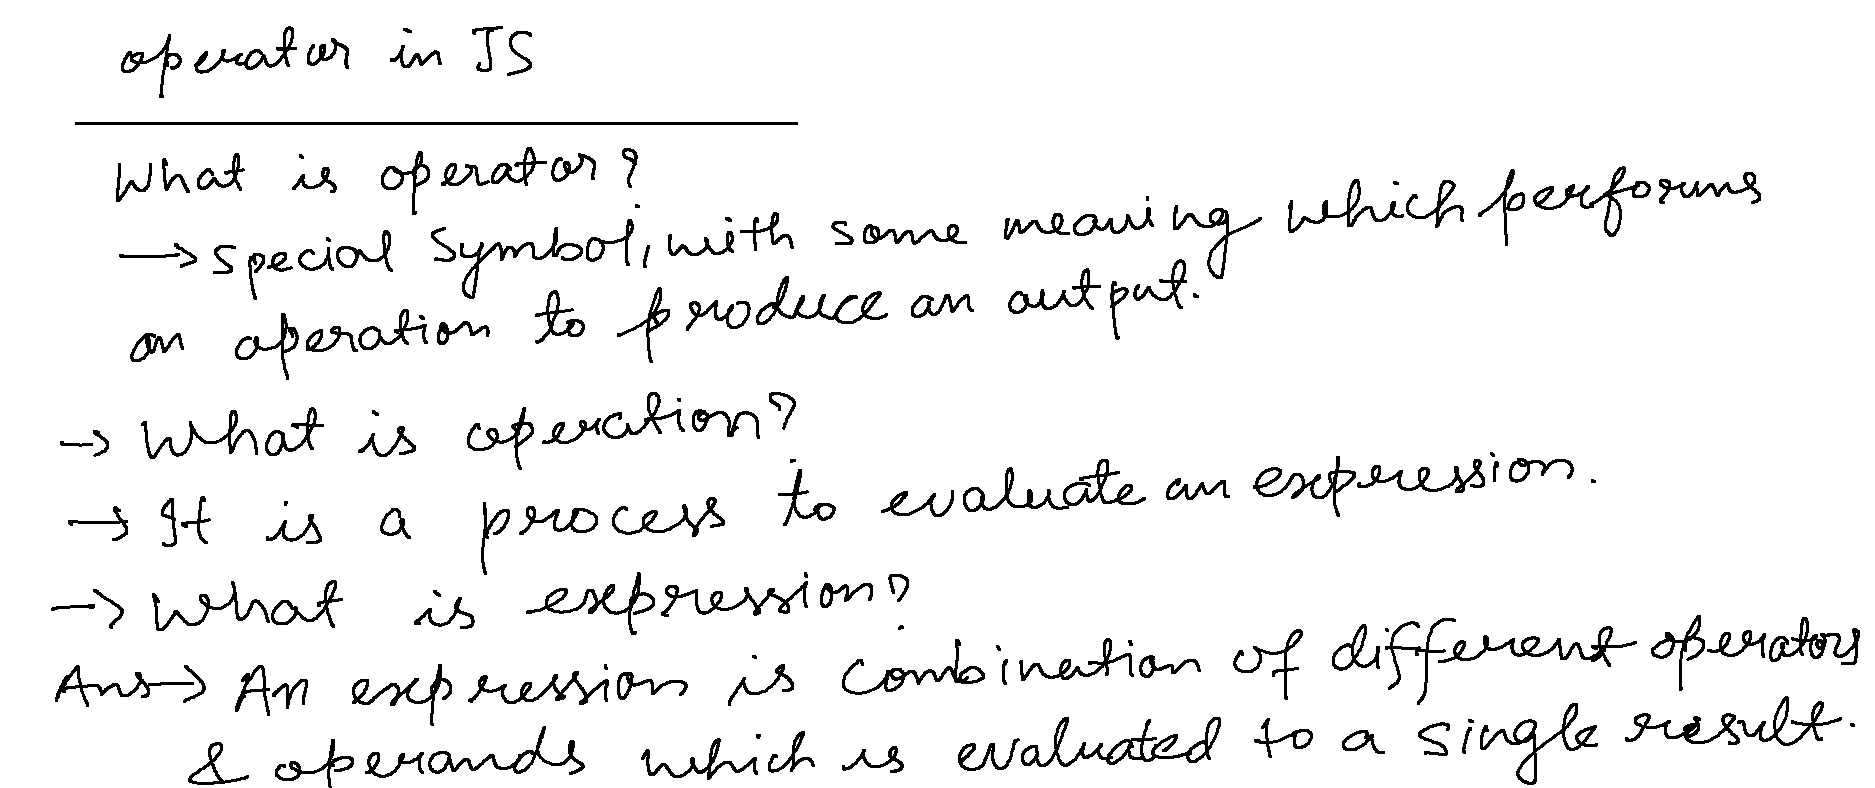 operator in JS
What is operator?
→ special symbol, with some meaning which performs
an operation to produce an output.
→ What is operation?
→ It is a process to evaluate an expression.
→ What is expression?
Ans→ An expression is combination of different operators
& operands which is evaluated to a single result.